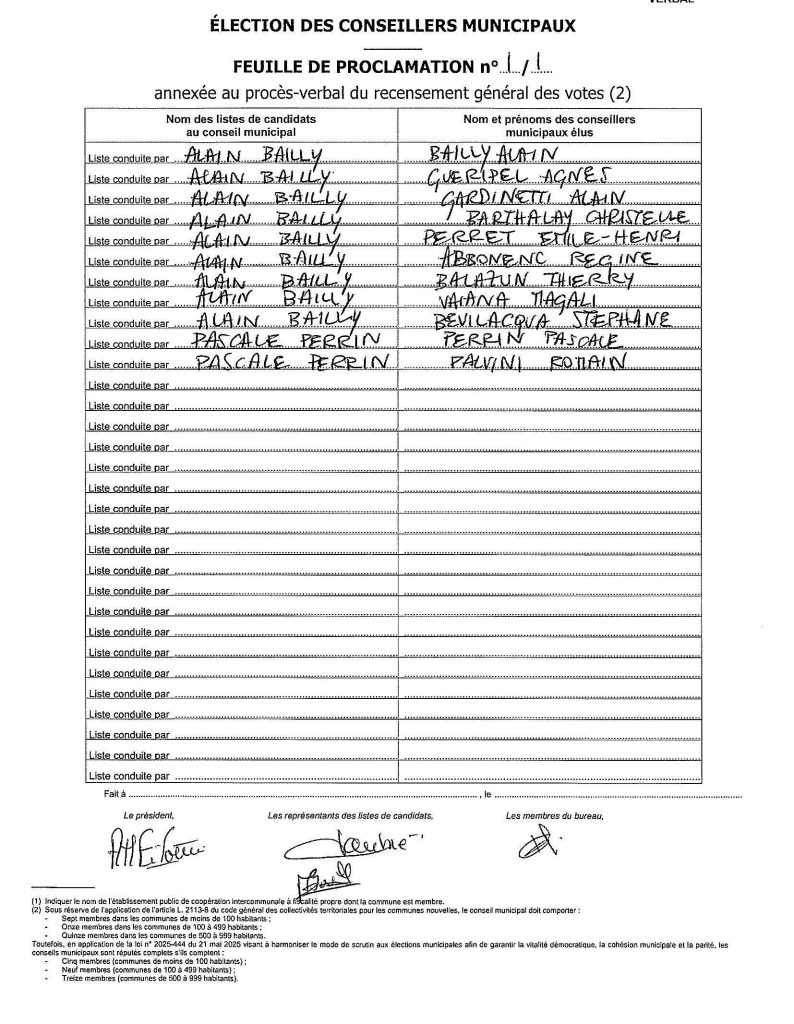 VERBAL
ÉLECTION DES CONSEILLERS MUNICIPAUX
FEUILLE DE PROCLAMATION n° 1 / 1
annexée au procès-verbal du recensement général des votes (2)
Nom des listes de candidats au conseil municipal | Nom et prénoms des conseillers municipaux élus
Liste conduite par ALAIN BAILLY | BAILLY ALAIN
Liste conduite par ALAIN BAILLY | GUERIPEL AGNES
Liste conduite par ALAIN BAILLY | GARDINETTI ALAIN
Liste conduite par ALAIN BAILLY | BARTHALAY CHRISTELLE
Liste conduite par ALAIN BAILLY | PERRET EMILE-HENRI
Liste conduite par ALAIN BAILLY | ABBONENC REGINE
Liste conduite par ALAIN BAILLY | THIERRY
Liste conduite par ALAIN BAILLY | VAIANA MAGALI
Liste conduite par ALAIN BAILLY | BEVILACQUA STEPHANE
Liste conduite par PASCALE PERRIN | PERRIN PASCALE
Liste conduite par PASCALE PERRIN | PALVINI ROMAIN
Liste conduite par
Liste conduite par
Liste conduite par
Liste conduite par
Liste conduite par
Liste conduite par
Liste conduite par
Liste conduite par
Liste conduite par
Liste conduite par
Liste conduite par
Liste conduite par
Liste conduite par
Liste conduite par
Liste conduite par
Liste conduite par
Liste conduite par
Liste conduite par
Liste conduite par
Liste conduite par
Fait à , le
Le président, Les représentants des listes de candidats, Les membres du bureau,
(1) Indiquer le nom de l'établissement public de coopération intercommunale à fiscalité propre dont la commune est membre.
(2) Sous réserve de l'application de l'article L. 2113-8 du code général des collectivités territoriales pour les communes nouvelles, le conseil municipal doit comporter :
- Sept membres dans les communes de moins de 100 habitants ;
- Onze membres dans les communes de 100 à 499 habitants ;
- Quinze membres dans les communes de 500 à 999 habitants.
Toutefois, en application de la loi n° 2025-444 du 21 mai 2025 visant à harmoniser le mode de scrutin aux élections municipales afin de garantir la vitalité démocratique, la cohésion municipale et la parité, les
conseils municipaux sont réputés complets s'ils comptent :
- Cinq membres (communes de moins de 100 habitants) ;
- Neuf membres (communes de 100 à 499 habitants) ;
- Treize membres (communes de 500 à 999 habitants).